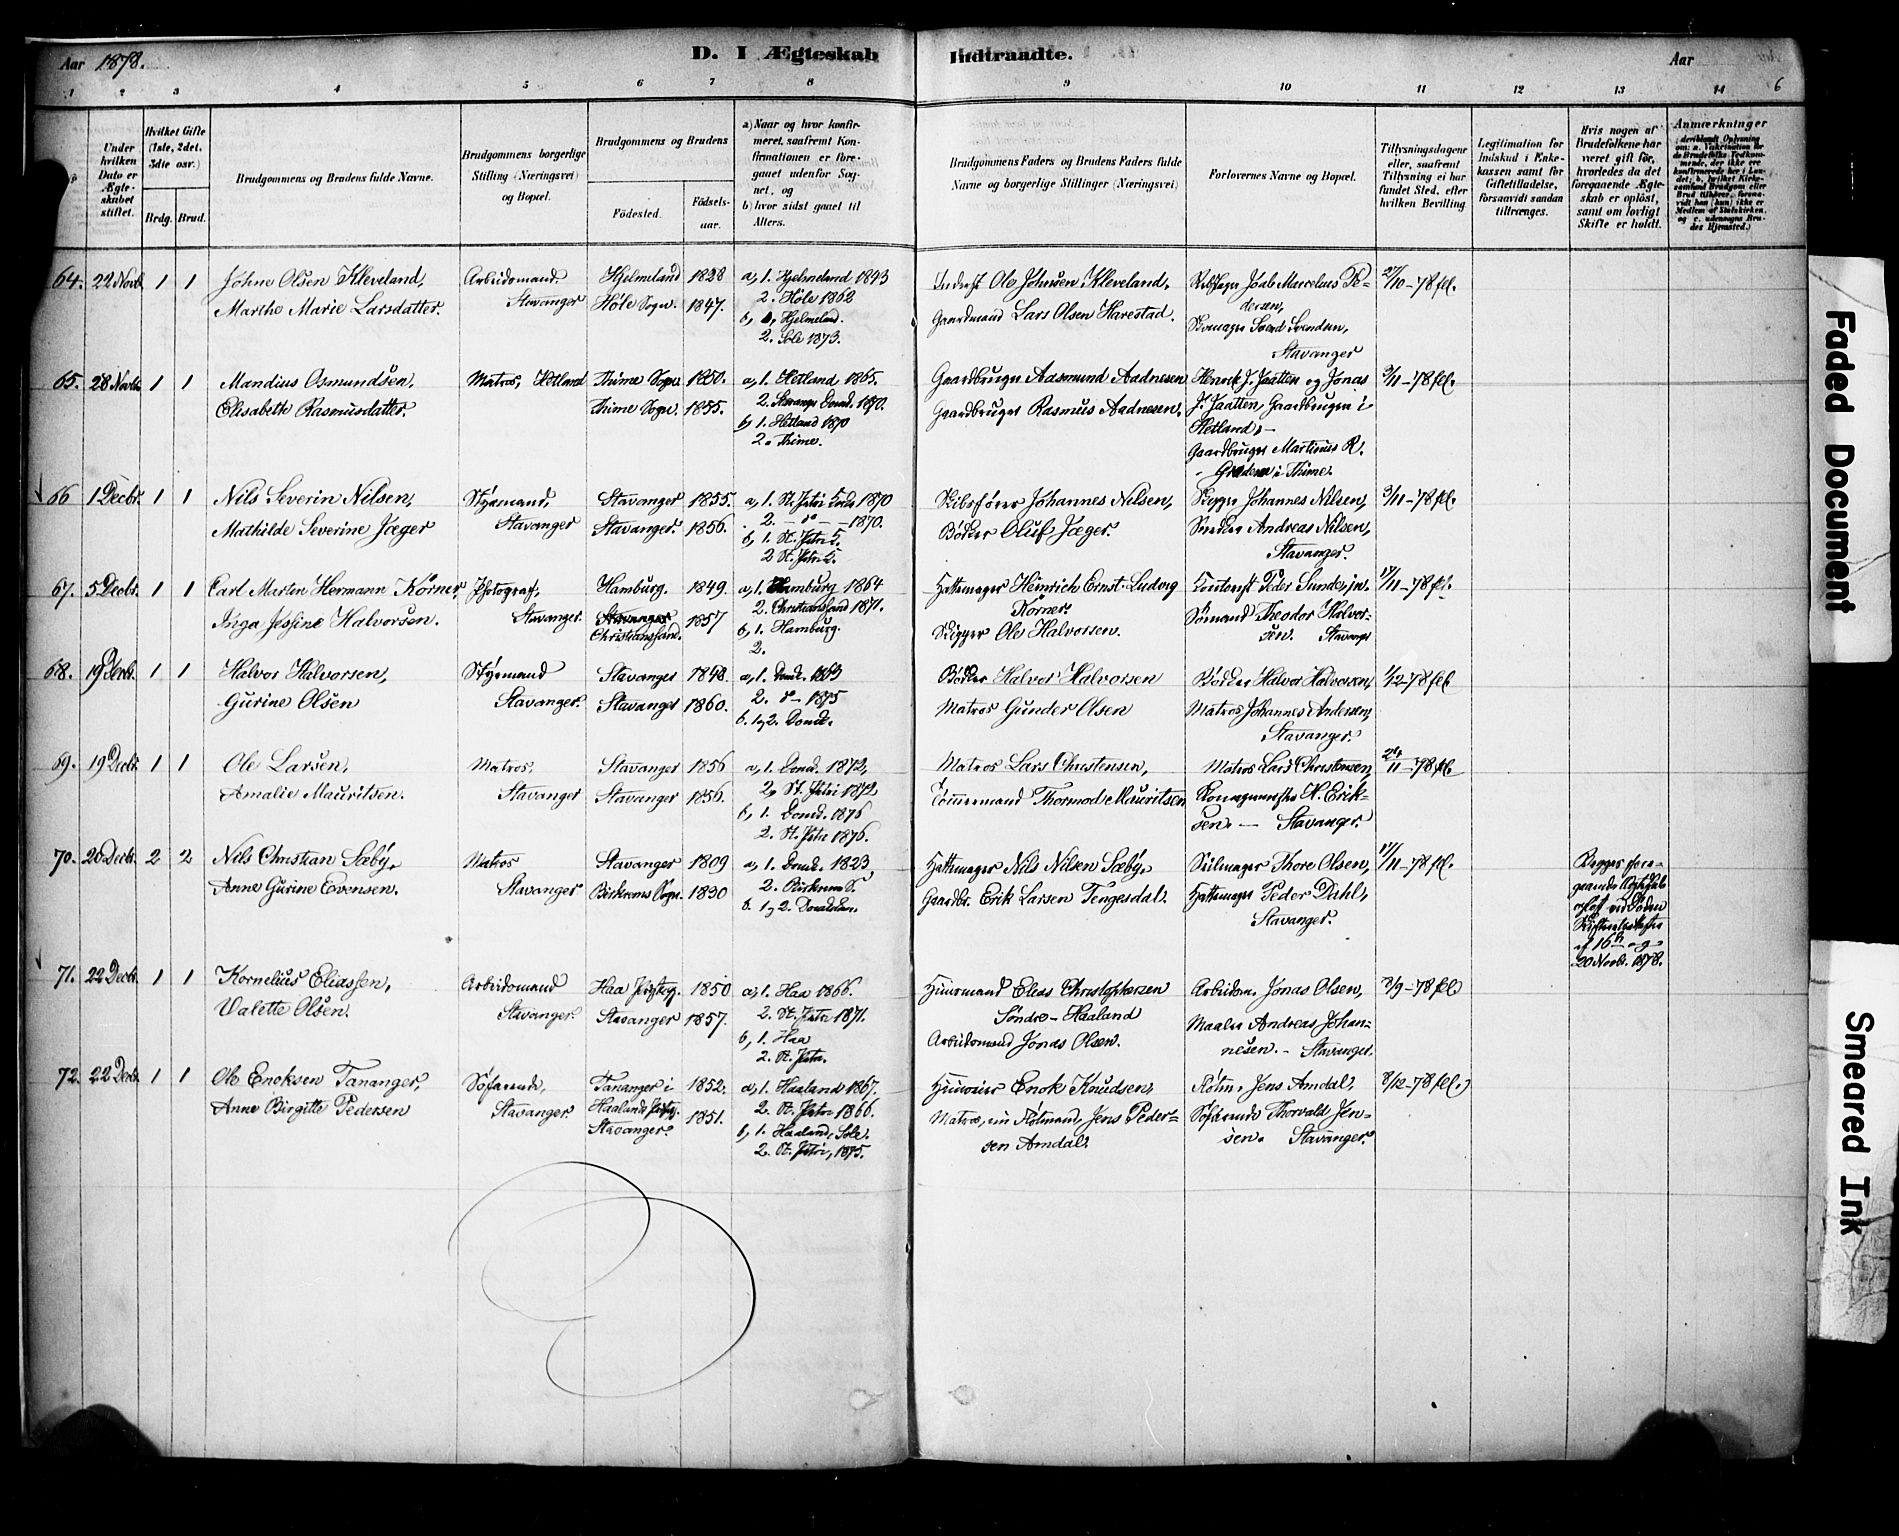 Aar 1878.
D. I Ægteskab Indtraadte.
Aar
6
1 2 3 4 5 6 7 8 9 10 11 12 13 14
Under hvilken Dato er Ægteskabet stiftet.
Hvilket Gifte (1ste, 2det, 3die osv.)
Brdg. Brud.
Brudgommens og Brudens fulde Navne.
Brudgommens borgerlige Stilling (Næringsvei) og Bopæl.
Brudgommens og Brudens
Fødested.
Fødselsaar.
a) Naar og hvor konfirmeret, saafremt Konfirmationen er foregaaet udenfor Sognet, og
b) hvor sidst gaaet til Alters.
Brudgommens Faders og Brudens Faders fulde Navne og borgerlige Stillinger (Næringsvei)
Forlovernes Navne og Bopæl.
Tillysningsdagene eller, saafremt Tillysning ei har fundet Sted, efter hvilken Bevilling.
Legitimation for Indskud i Enkekassen samt for Giftetilladelse, forsaavidt saadan tiltrænges.
Hvis nogen af Brudefolkene har været gift før, hvorledes da det foregaaende Ægteskab er opløst, samt om lovligt Skifte er holdt.
Anmærkninger
64. 22 Novb. 1 1
Johne Olsen Kleveland,
Marthe Marie Larsdatter.
Arbeidsmand.
Stavanger
Hjelmeland 1828
Høle Sogn. 1847.
a, 1. Hjelmeland 1843
2. Höle 1862
b, 1, Hjelmeland.
2. Sole 1873.
Inderst Ole Johnsen Kleveland,
Gaardmand Lars Olsen Harestad.
Jaab Marcelius Pedersen,
Skomager Svend Svendsen,
Stavanger
27/10-78 fl.
65. 28 Novbr. 1 1
Mandius Osmundsen,
Elisabeth Rasmusdatter.
Matros, Hetland
Thime Sogn 1850.
Thime Sogn. 1855.
a, 1. Hetland 1865.
2. Stavanger Domk. 1870.
b, 1. Hetland 1870
2. Thime.
Gaardbruger Aasmund Aadnesen
Gaardbruger Rasmus Aadnesen.
Henrik J. Jaatten og Jonas
J. Jaatten, Gaardbrugere i
Hetland, -
Gaardbruger Martinus R.
i Thime.
3/11-78 fl.
66 1 Decbr. 1 1
Nils Severin Nilsen,
Mathilde Severine Jæger
Styrmand,
Stavanger
Stavanger 1855.
Stavanger. 1856.
a, 1. St. Petri 1870
2. - do - 1870.
b, 1. St. Petri
2 St. Petri
Skibsfører Johannes Nilsen,
Bødker Oluf Jæger.
Skipper Johannes Nilsen,
Snedker Andreas Nilsen,
Stavanger.
3/11-78 fl.
67. 5 Decbr. 1 1
Carl Martin Hermann Körner,
Inga Jessine Halvorsen.
Photograf,
Stavanger.
Hamburg. 1849.
Stavanger
Christianssand. 1857
a, 1. Hamburg 1864
2. Christianssand 1871.
b, 1. Hamburg.
2.
Hattemager Heinrich Ernst Ludvig
Körner.
Skipper Ole Halvorsen.
Peder Sunde, jn.
Sømand Theodor Halvorsen.
Stavanger
17/11-78 fl.
68. 19 Decbr. 1 1
Halvor Halvorsen,
Gurine Olsen
Styrmand
Stavanger.
Stavanger 1848.
Stavanger 1860.
a, 1. Domk. 1863
2. do - 1875
b. 1, 2. Domk.
Bødker Halvor Halvorsen
Matros Gunder Olsen
Bødker Halvor Halvorsen,
Matros Johannes Andersen,
Stavanger.
1/12-78 fl.
69. 19 Decbr. 1 1
Ole Larsen,
Amalie Mauritsen.
Matros,
Stavanger
Stavanger 1856
Stavanger 1856.
a, 1. Domk. 1872,
2, St. Petri 1872
b, 1. Domk. 1876
2. St. Petri 1876.
Matros Lars Christensen,
Tømmermand Thormod Mauritsen
Matros Lars Christensen,
N. Eriksen. - Stavanger.
24/11-78 fl.
70. 20 Decbr. 2 2
Nils Christian Sæby,
Anne Gurine Evensen.
Matros
Stavanger
Stavanger 1809
Birkrems Sogn. 1830
a, 1. Domk. 1823
2. Birkrem S.
b. 1, 2. Domkirken.
Hattemager Nils Nilsen Sæby,
Gaardbr. Erik Larsen Tengesdal.
Seilmager Thore Olsen,
Hattemager Peder Dahl,
Stavanger.
17/11-78 fl.
Begges foregaaende Ægteskab
opløst ved Døden
Skifteattester
af 16de og
20 Novbr. 1878.
71. 22 Decbr. 1 1
Kornelius Eliassen,
Valette Olsen.
Arbeidsmand
Stavanger.
Haa Prstg. 1850
Stavanger 1857.
a, 1. Haa 1866.
2. St. Petri 1871.
b, 1. Haa
2. St. Petri.
Huusmand Elias Christophersen
Söndre-Haaland
Arbeidsmand Jonas Olsen.
Arbeidsm. Jonas Olsen,
Maaler Andreas Johannesen. - Stavanger.
72. 22 Decbr. 1 1
Ole Enoksen Tananger,
Anne Birgitte Pedersen
Søfarende,
Stavanger.
Tananger i 1852.
Haalands Prstg.
Stavanger. 1851.
a, 1. Haaland 1867.
2. St. Petri 1866.
b, 1. Haaland, Sole.
2. St. Petri, 1875.
Huuseier Enok Knudsen,
Matros, Jens Pedersen Amdal.
Jens Amdal,
Søfarende Thorvald Jensen. Stavanger.
8/12-78 fl.
Faded Document
Smeared Ink